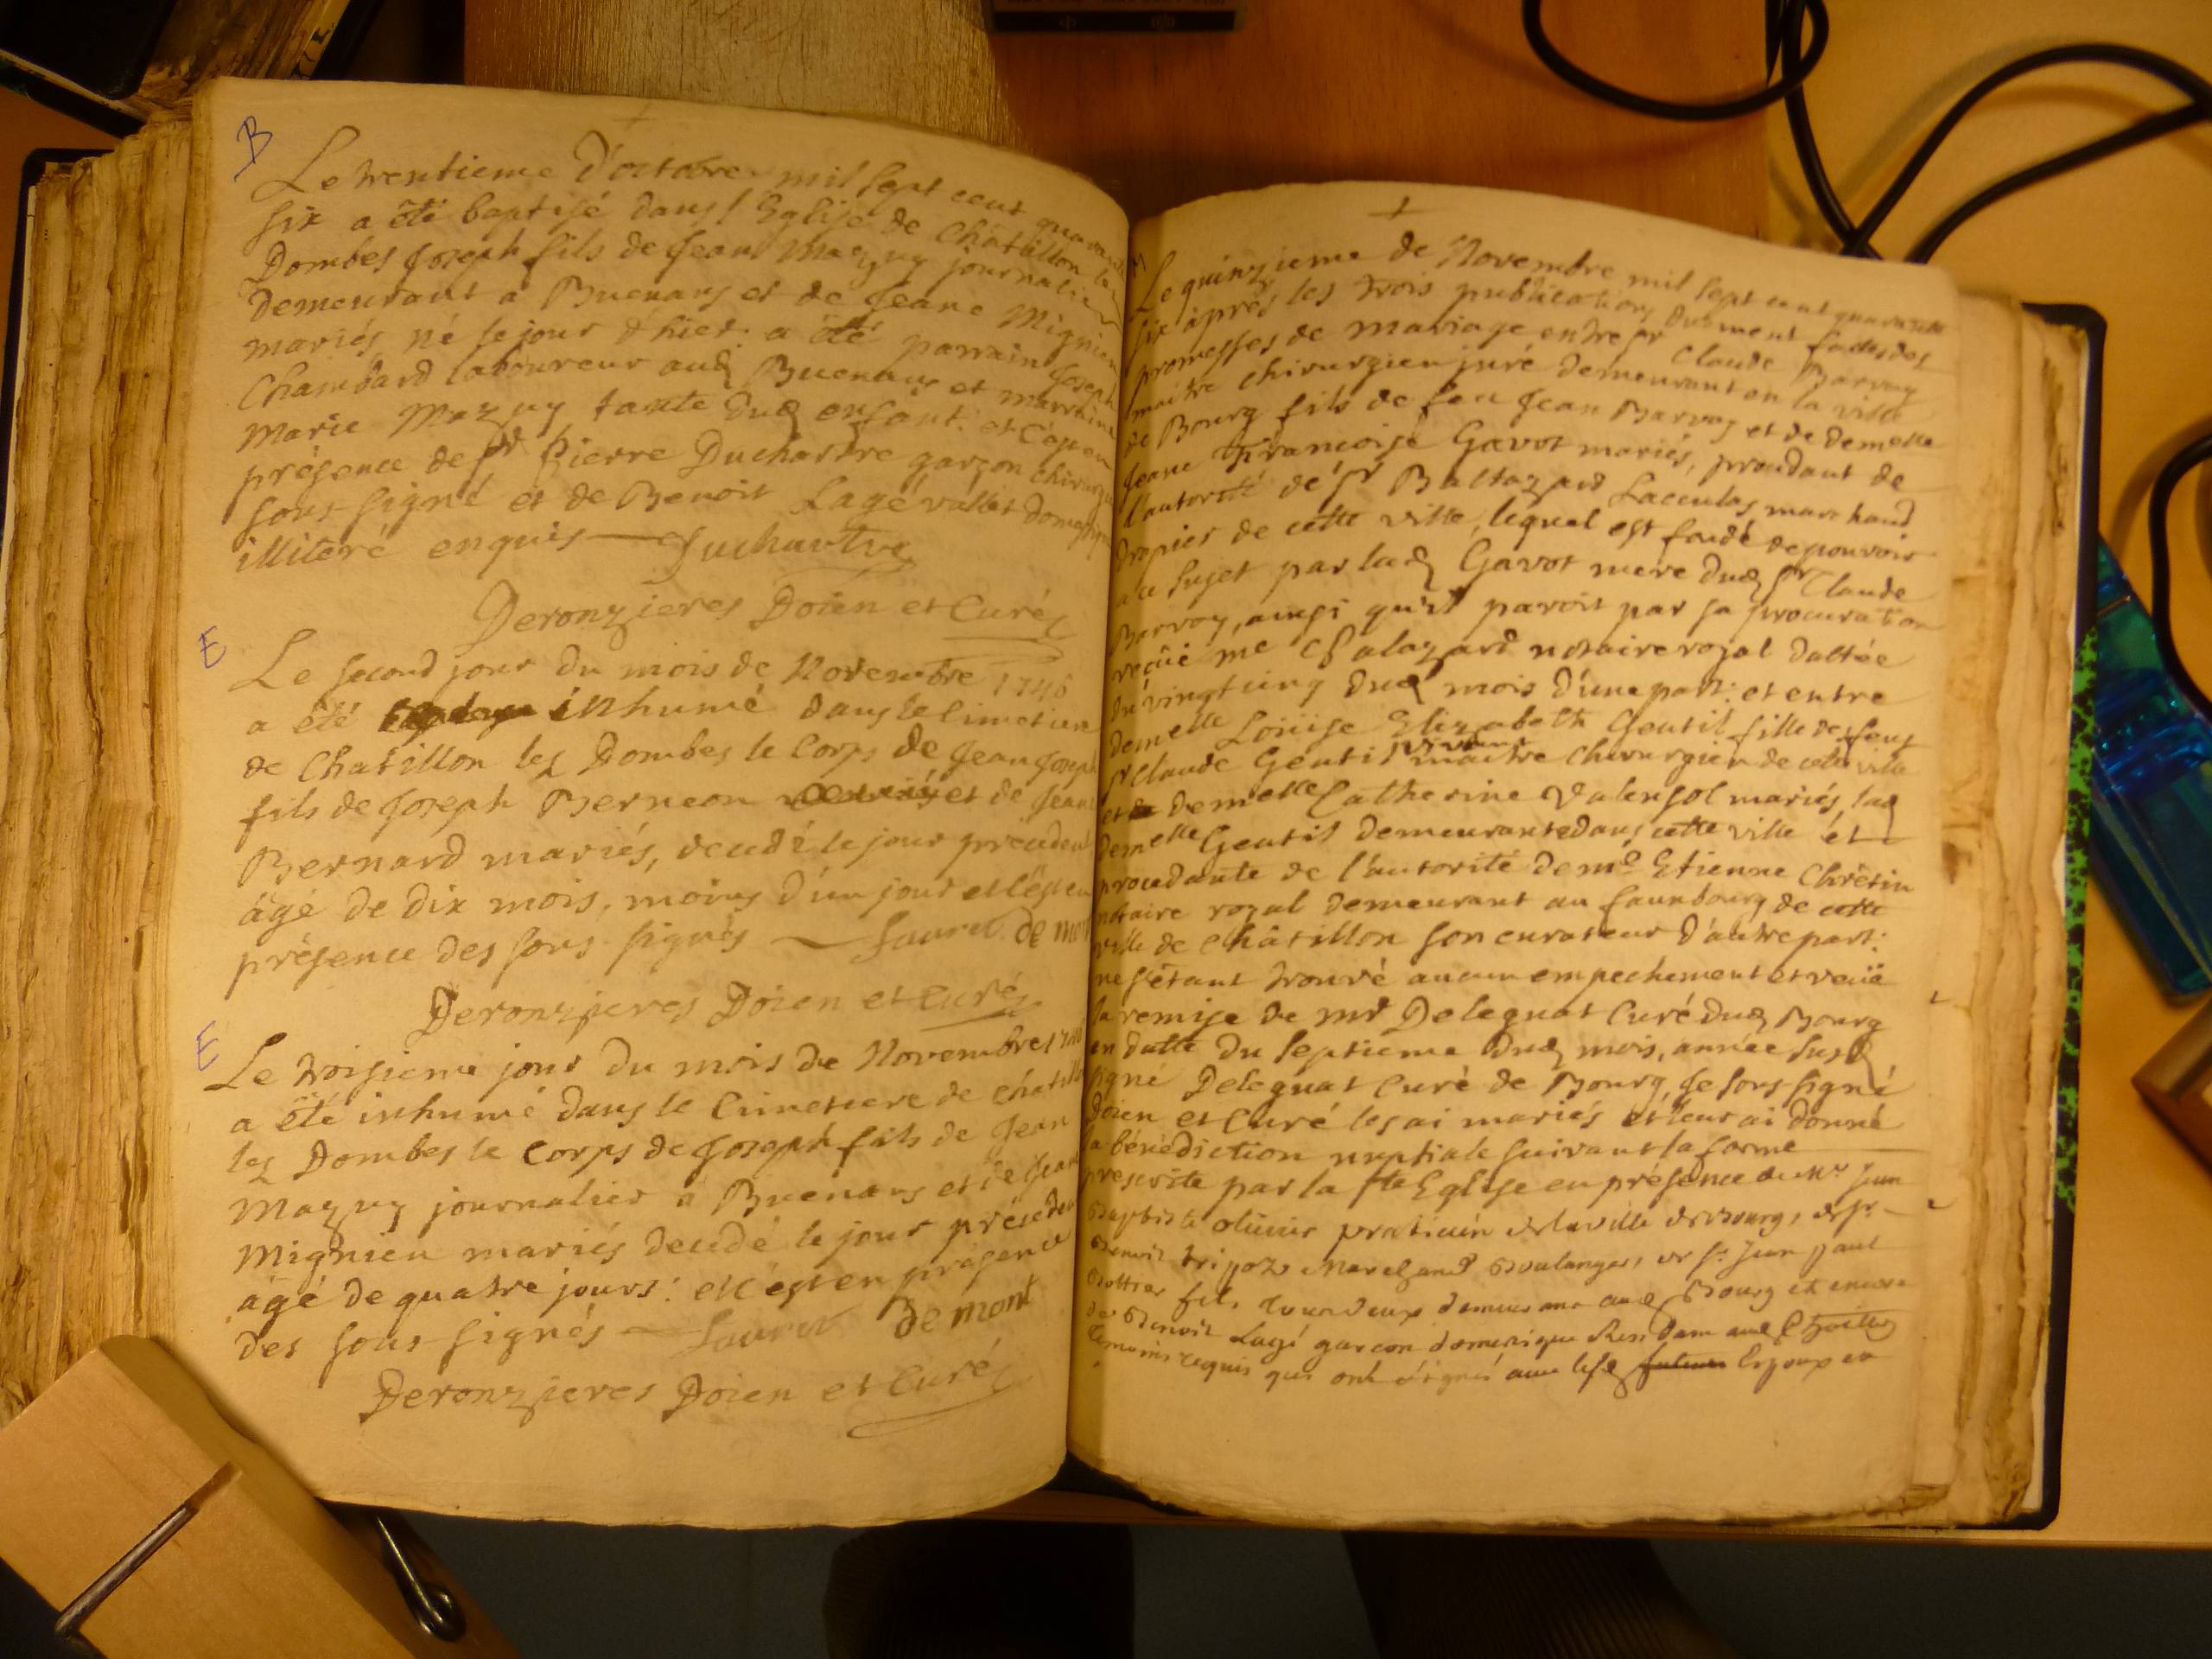 B
Le trentieme d'octobre mil sept cent quarante
six a été baptisé dans l'Eglise de Châtillon les
Dombes Joseph fils de Jean Mazuy journalier
demeurant a Buenans et de Jeane Mignien
mariés, né le jour d'hier: a été parrain Joseph
Chambard laboureur aud Buenans et marraine
Marie Mazuy tante dud enfant: et c'ap en
présence de sr Pierre Duchastre garçon chirurgien
sous-signé et de Benoit Lagé vallet domestique
illiteré enquis — Duchastre
Deronzieres Doien et Curé
E
Le second jour du mois de Novembre 1746
a été inhumé dans le cimetiere
de Chatillon les Dombes le Corps de Jean Joseph
fils de Joseph Berneon et de Jeane
Bernard mariés, decedé le jour précédent
âgé de dix mois, moins d'un jour et c'est en
présence des sous-signés — Lauret de mont
Deronzieres Doien et Curé
E
Le troisieme jour du mois de Novembre 1746
a été inhumé dans le Cimetiere de Chatillon
les Dombes le Corps de Joseph fils de Jean
Mazuy journalier a Buenans et de Jeane
Mignien mariés decedé le jour précédent
âgé de quatre jours: et c'est en présence
des sous-signés — Lauret De mont
Deronzieres Doien et Curé
M
Le quinzieme de Novembre mil sept cent quarante
six après les trois publications duement faites des
promesses de mariage entre sr Claude Barvoy
maître chirurgien juré demeurant en la ville
de Bourg fils de feu Jean Barvoy et de demelle
Jeane Francoise Gavot mariés, procedant de
l'autorité de sr Baltazard Lacculas marchand
drapier de cette ville, lequel est fondé de pouvoir
a ce sujet par lad Gavot mere dud sr Claude
Barvoy, ainsi qu'il paroit par sa procuration
reçüe me Chalazard notaire royal dattée
du vingt cinq dud mois d'une part: et entre
demelle Loüise Elizabeth Gentil fille de feus
sr Claude Gentil vivant maître chirurgien de cette ville
et demelle Catherine Valensol mariés, lad
demelle Gentil demeurante dans cette ville et
procedante de l'autorité de me Etienne Chrétin
notaire royal demeurant au faunbourg de cette
ville de Châtillon son curateur d'autre part:
ne s'étant trouvé aucun empechement et veüe
la remise de mr Deleguat Curé dud Bourg
en datte du septieme dud mois, année susd
signé Deleguat Curé de Bourg, Je sous-signé
Doien et Curé les ai mariés et leur ai donné
la bénédiction nuptiale suivant la forme
prescrite par la ste Eglise en présence de Mr Jean
Baptiste olivier praticien de la ville de Bourg, de sr
Benoit tripoz Marchand Boulanger, et sr Jean paul
Bottier fils tous deux demeurant aud Bourg et encore
de Benoit Lagé garcon domestique Residant aud Chatillon
temoins requis qui ont signé avec lesd futeurs Epoux et